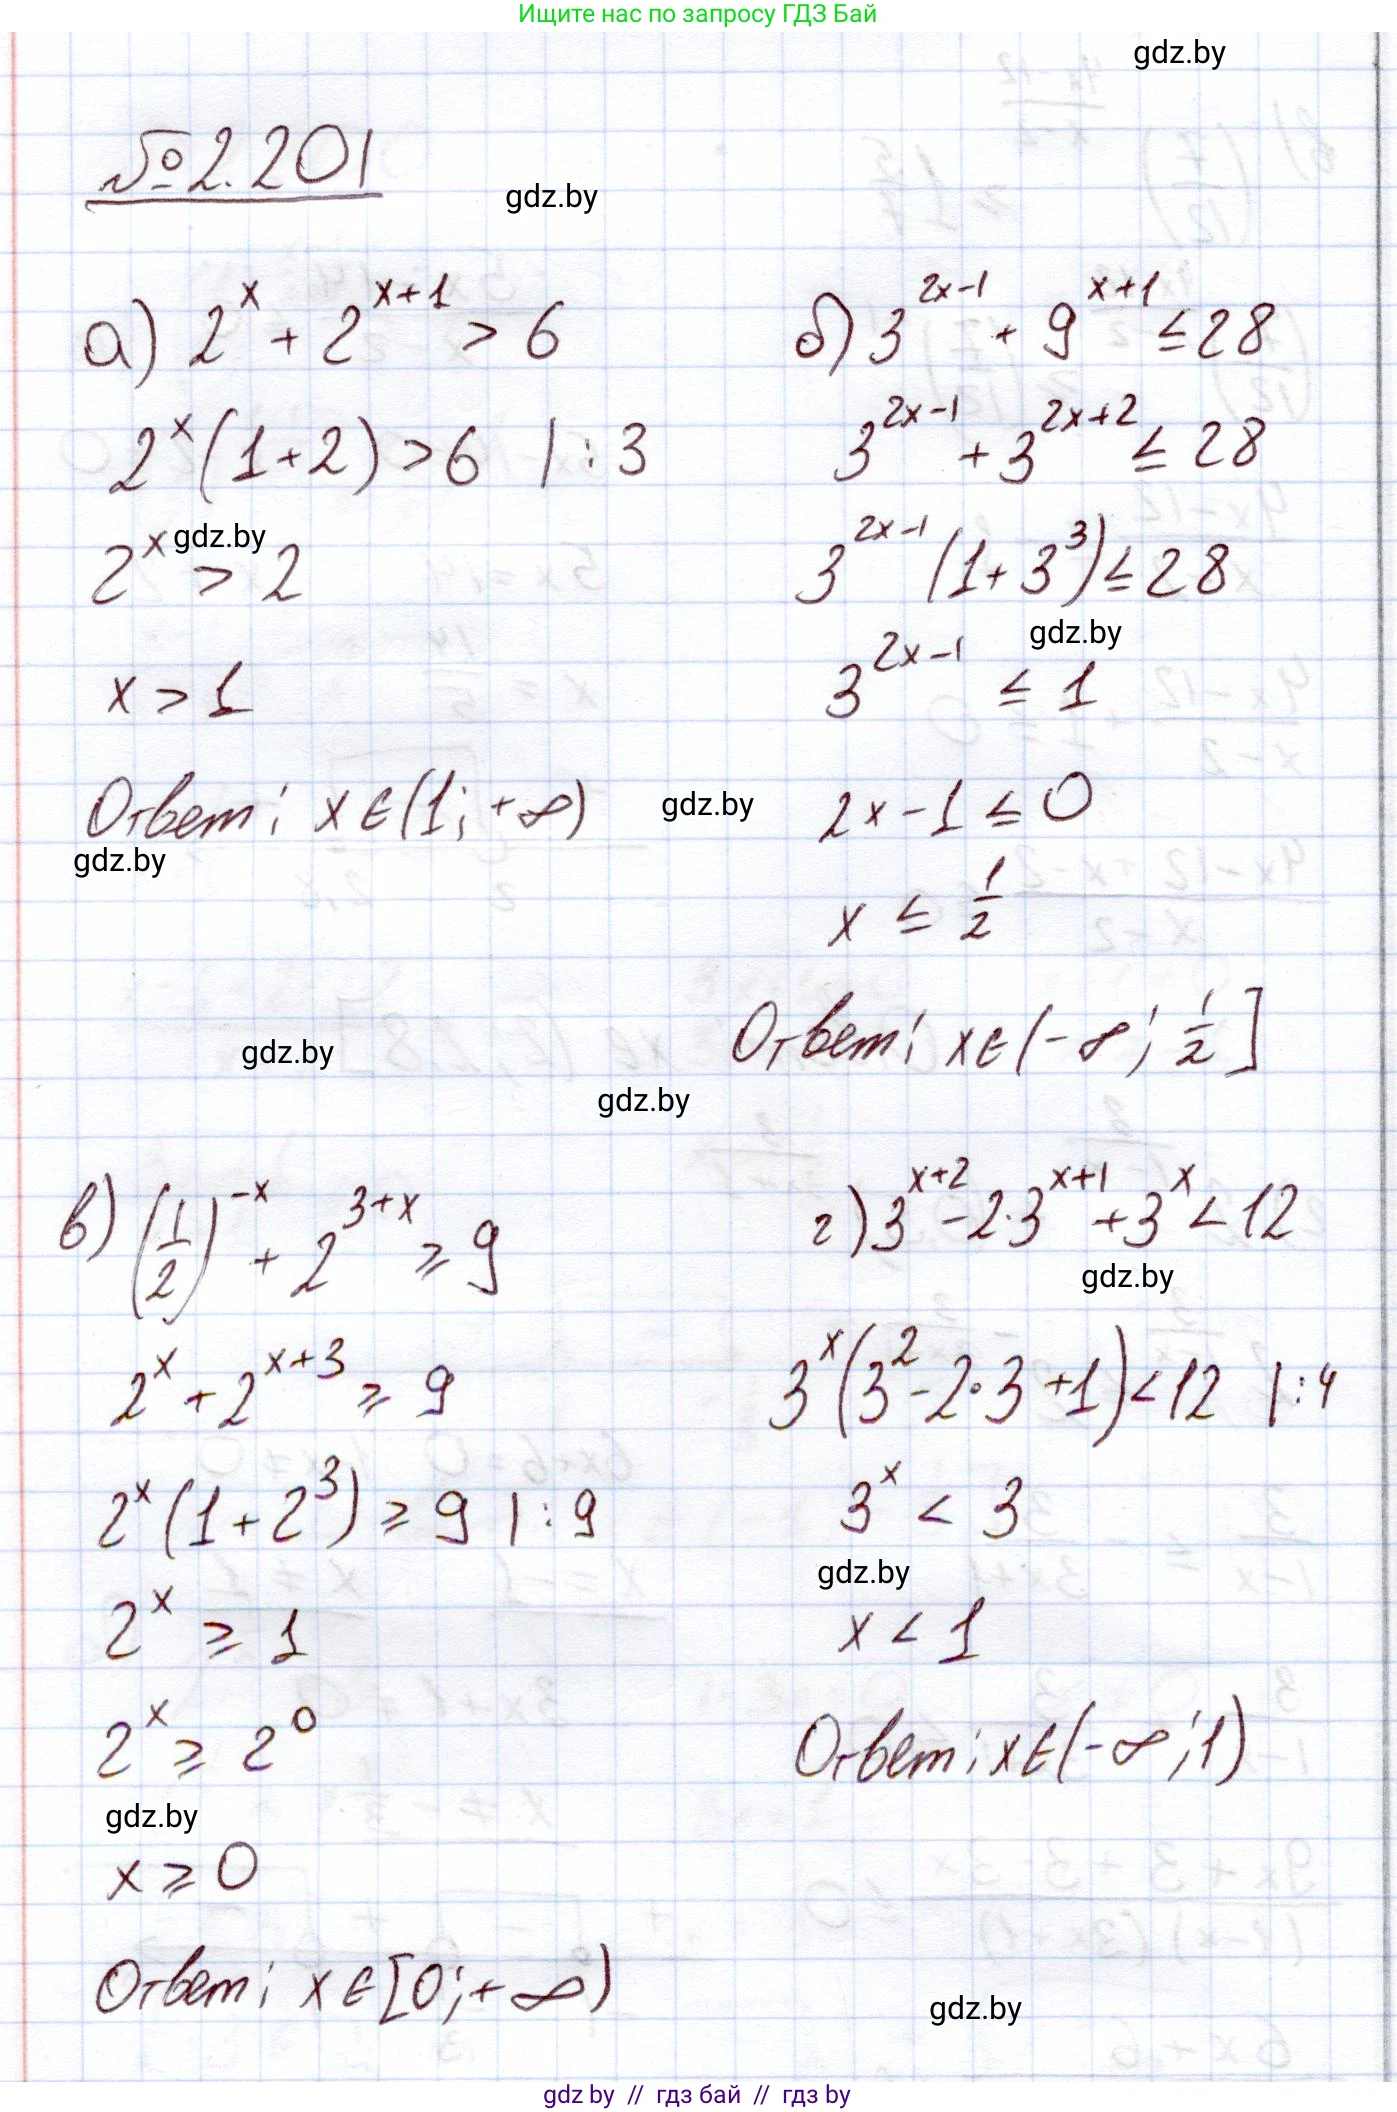 Ищите нас по запросу ГДЗ Бай
gdz.by
№2.201
gdz.by
а) 2^x + 2^{x+1} > 6
2^x (1+2) > 6 | : 3
gdz.by
2^x > 2
x > 1
Ответ: x ∈ (1; +∞)
gdz.by
gdz.by
б) 3^{2x-1} + 9^{x+1} ≤ 28
3^{2x-1} + 3^{2x+2} ≤ 28
3^{2x-1} (1 + 3^3) ≤ 28
gdz.by
3^{2x-1} ≤ 1
2x - 1 ≤ 0
x ≤ 1/2
Ответ: x ∈ (-∞; 1/2]
gdz.by
gdz.by
в) (1/2)^{-x} + 2^{3+x} ≥ 9
2^x + 2^{x+3} ≥ 9
2^x (1 + 2^3) ≥ 9 | : 9
2^x ≥ 1
2^x ≥ 2^0
gdz.by
x ≥ 0
Ответ: x ∈ [0; +∞)
г) 3^{x+2} - 2·3^{x+1} + 3^x < 12
gdz.by
3^x (3^2 - 2·3 + 1) < 12 | : 4
3^x < 3
gdz.by
x < 1
Ответ: x ∈ (-∞; 1)
gdz.by
gdz.by // гдз бай // гдз by